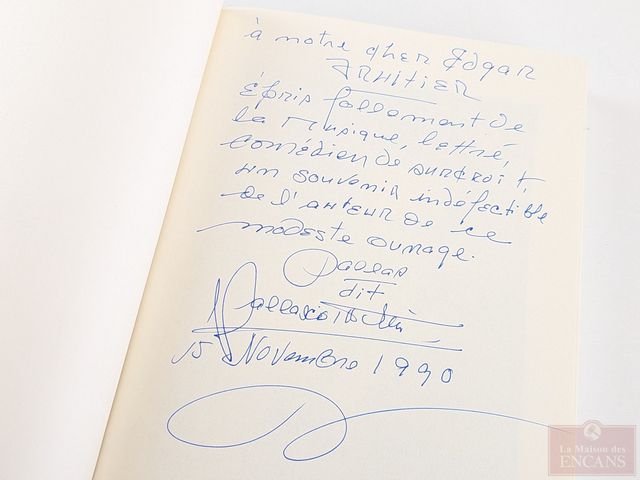 à notre cher Edgar
FRUITIER
épris follement de
la musique, lettré,
comédien de surcroît,
un souvenir indéfectible
de l'auteur de ce
modeste ouvrage.
dit
15 Novembre 1990
La Maison des
ENCANS